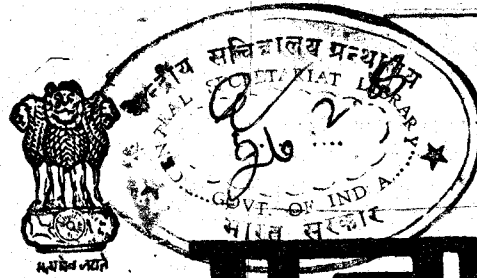 केन्द्रीय सचिवालय ग्रन्थालय
CENTRAL SECRETARIAT LIBRARY
GOVT. OF INDIA
भारत सरकार
सत्यमेव जयते